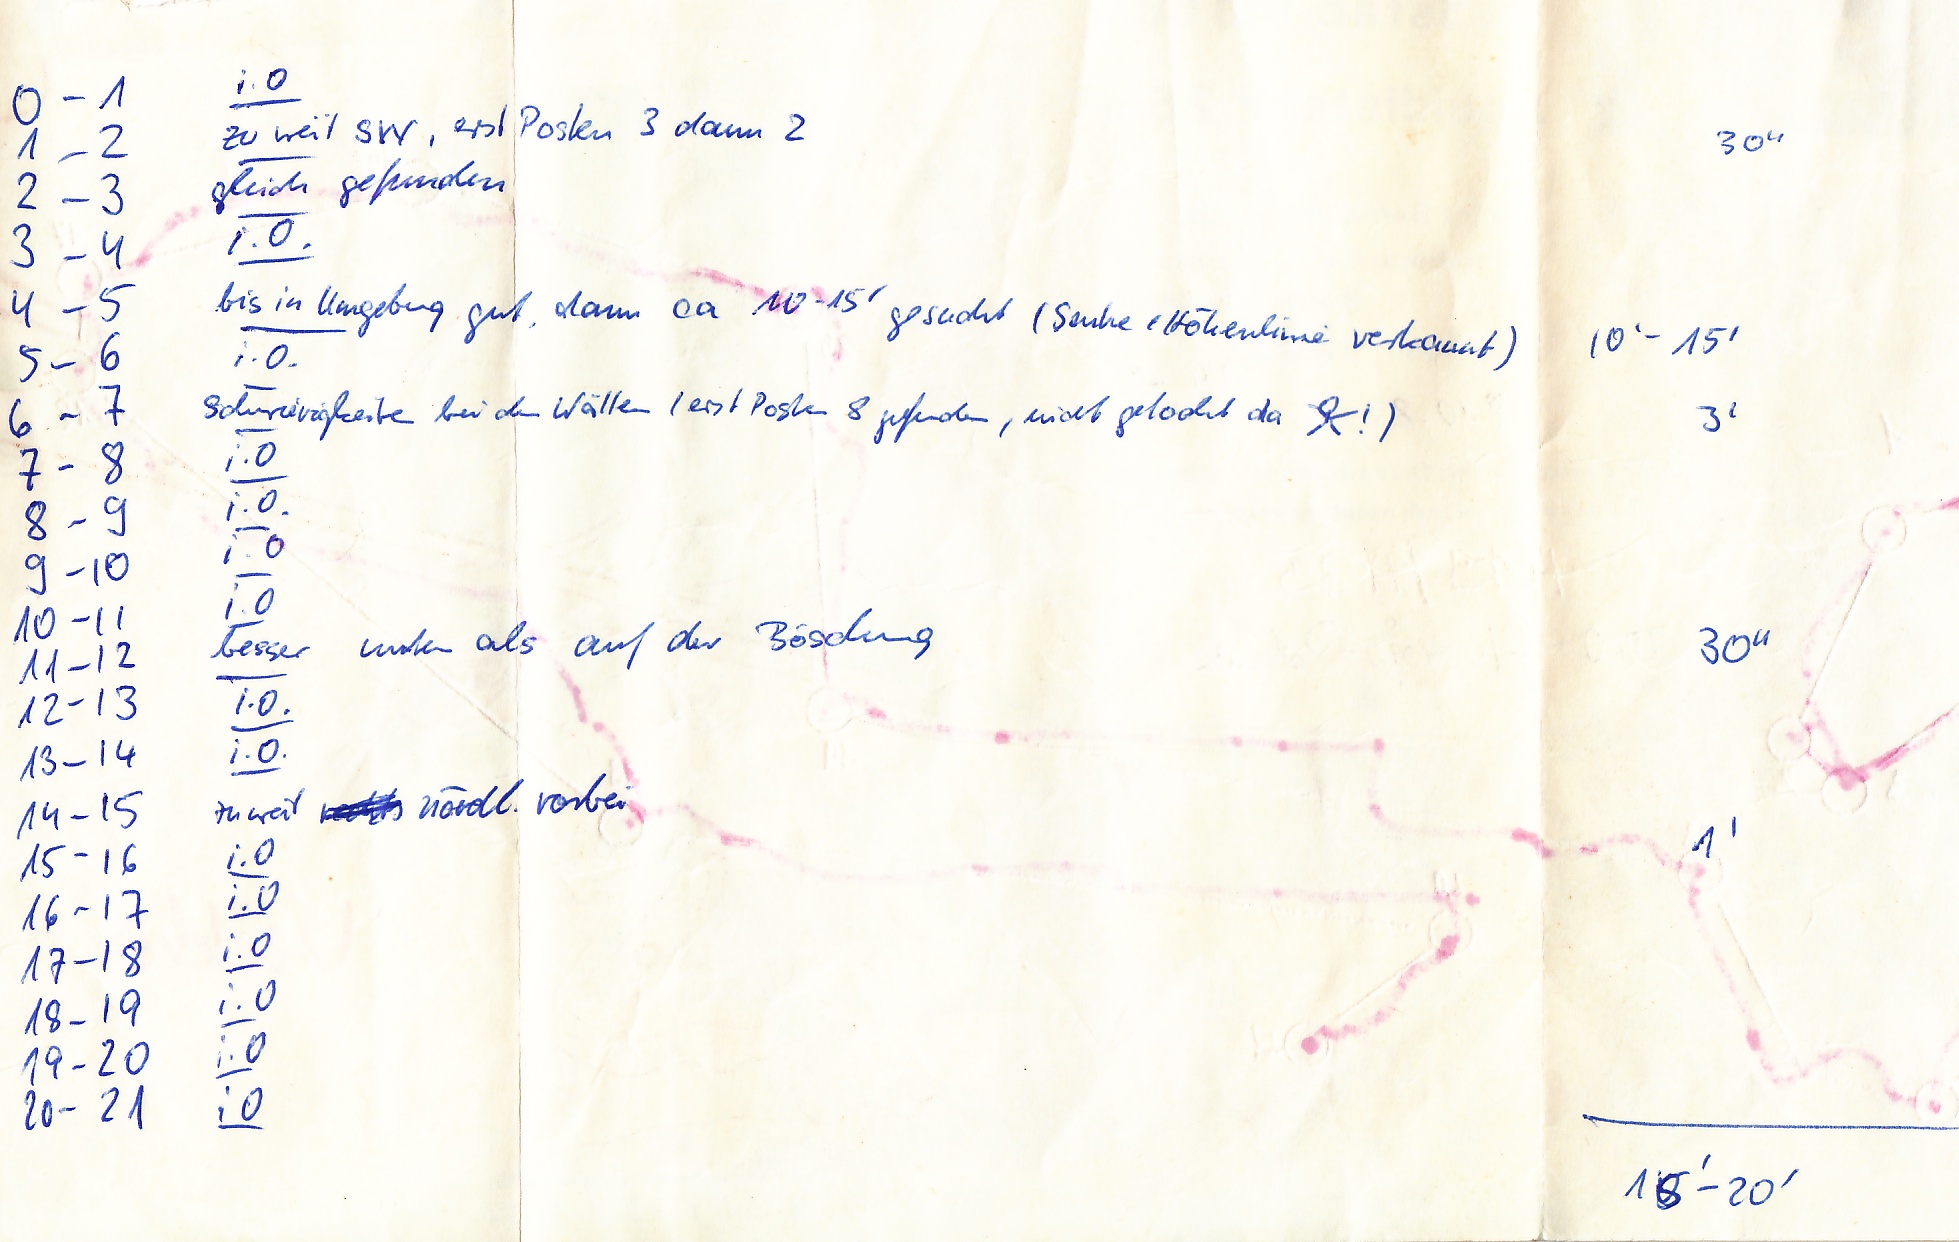 0 - 1 i.O
1 - 2 zu weit SW, erst Posten 3 dann 2 30"
2 - 3 gleich gefunden
3 - 4 i.O.
4 - 5 bis in Umgebung gut, dann ca 10-15' gesucht (Senke / Höhenlinie verkannt) 10' - 15'
5 - 6 i.O.
6 - 7 Schwierigkeiten bei den Wällen (erst Posten 8 gefunden, nicht gelocht da !) 3'
7 - 8 i.O
8 - 9 i.O.
9 - 10 i.O
10 - 11 i.O
11 - 12 besser unten als auf der Böschung 30"
12 - 13 i.O.
13 - 14 i.O.
14 - 15 zu weit nördl. vorbei 1'
15 - 16 i.O
16 - 17 i.O
17 - 18 i.O
18 - 19 i.O
19 - 20 i.O
20 - 21 i.O
15' - 20'